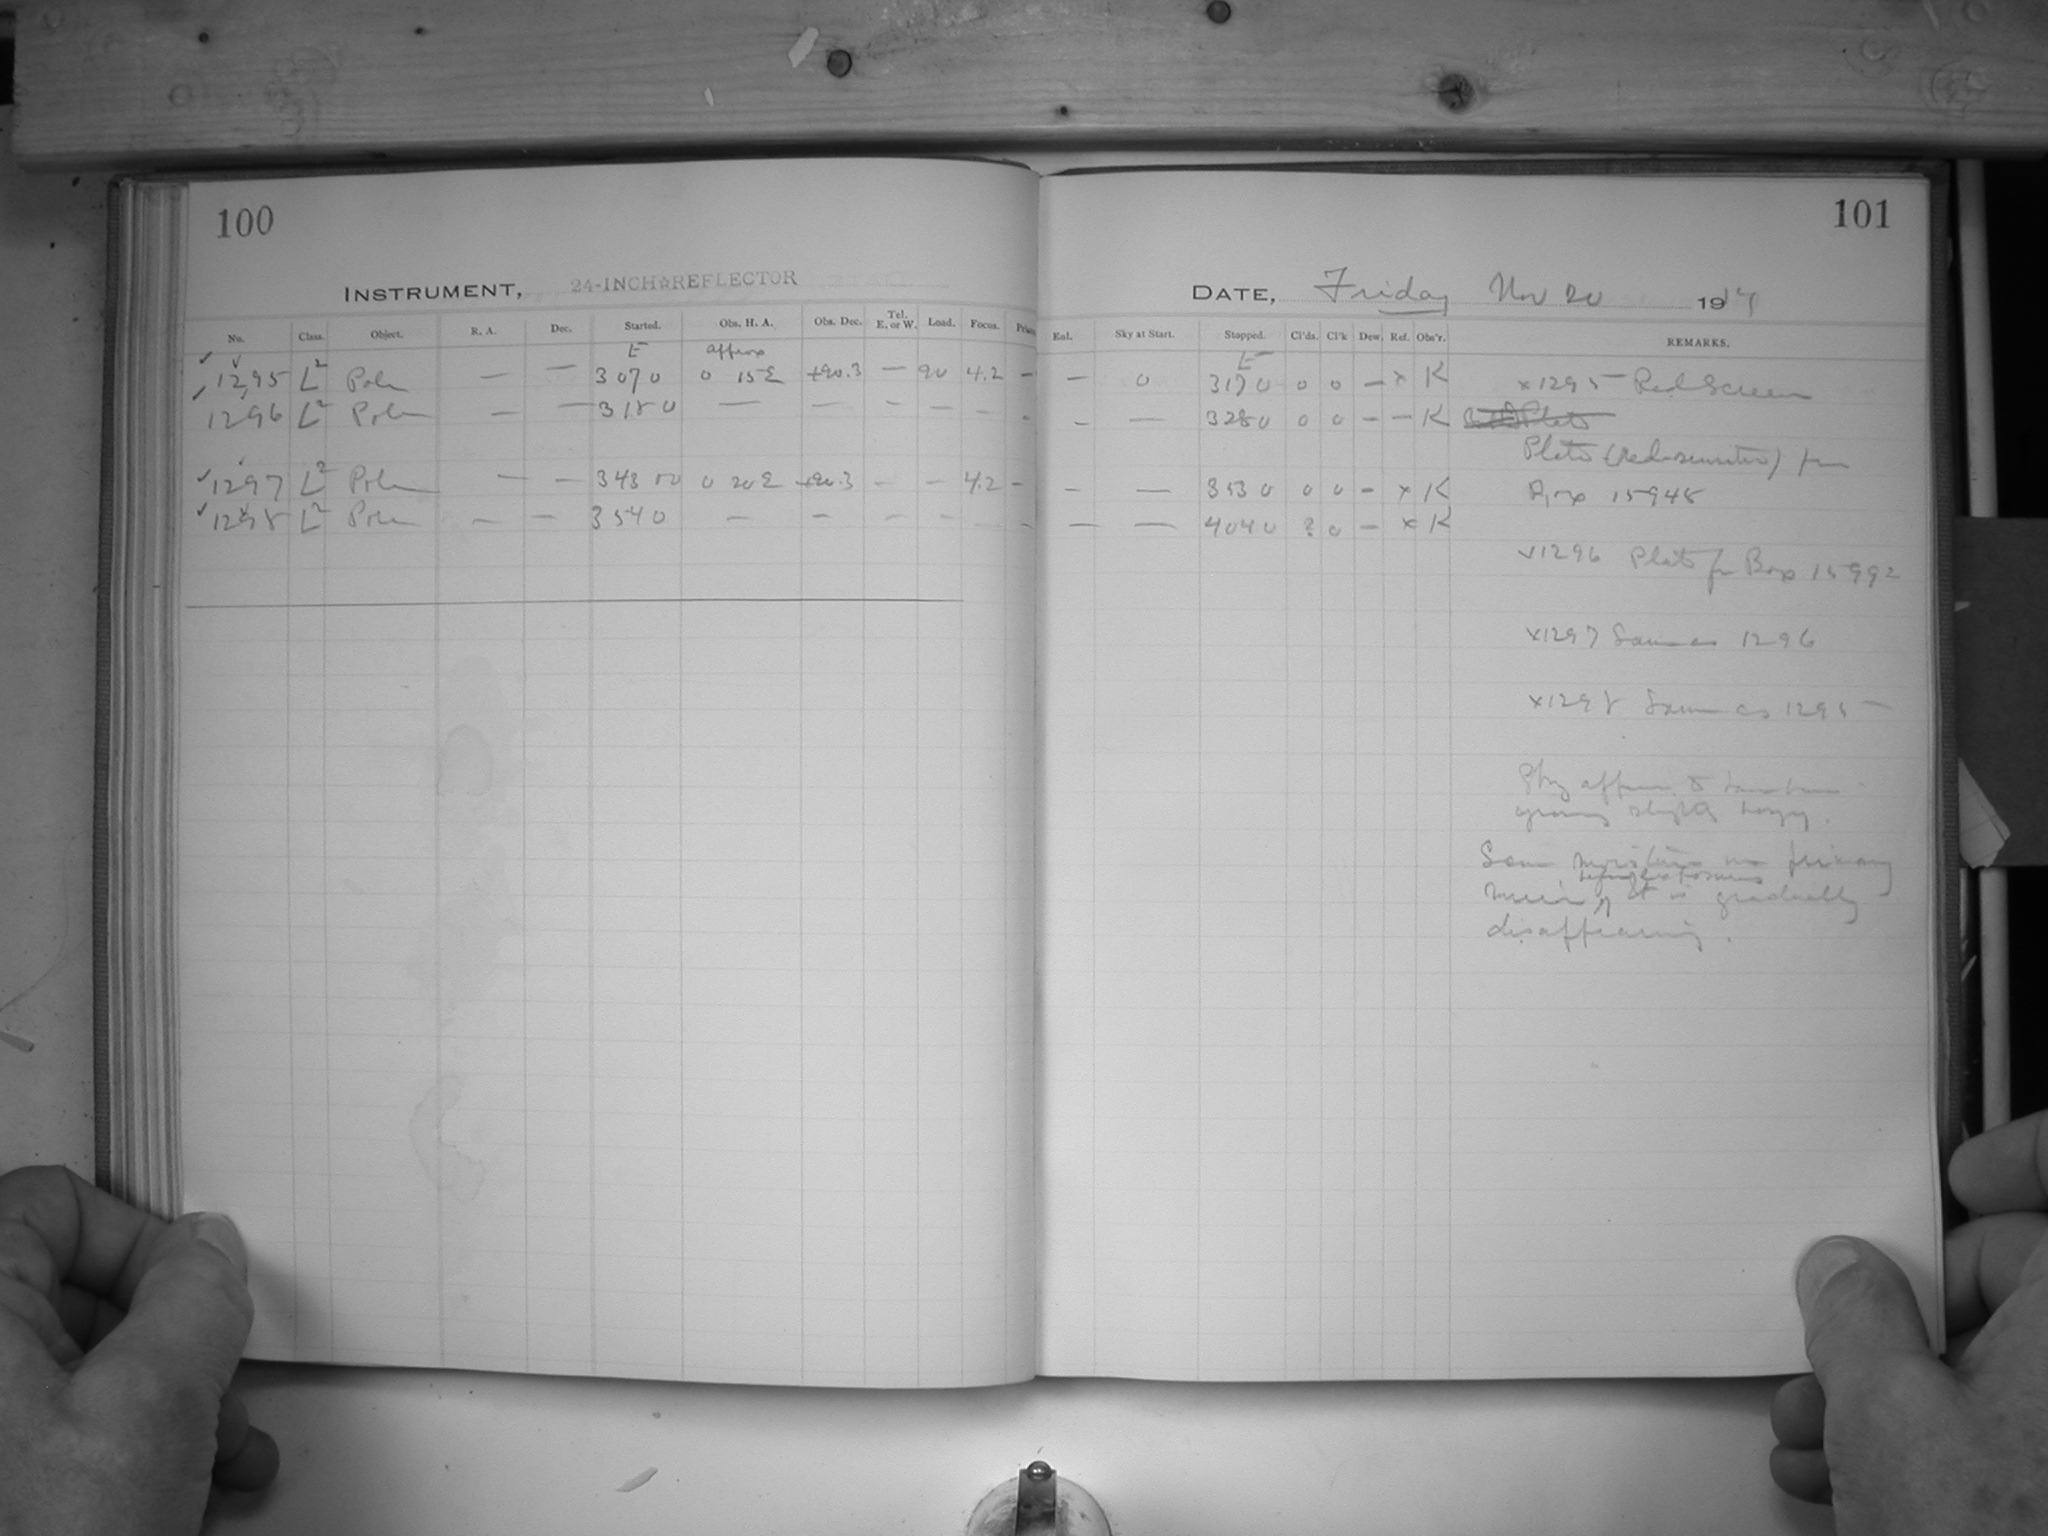 100
INSTRUMENT, 24-INCH☆REFLECTOR
No. Class. Object. R. A. Dec. Started. Obs. H. A. Obs. Dec. Tel. E. or W. Load. Focus.
E approx
1295 L2 Pole — — 3070 0 15E +90.3 — 90 4.2 –
1296 L2 Pole — — 3180 — — – – – -
1297 L2 Pole — – 3430 0 20E +90.3 – – 4.2 –
1298 L2 Pole – – 3540 – – – – – –
101
DATE, Friday Nov 20 1914
Enl. Sky at Start. Stopped. Cl'ds. Cl'k Dew. Ref. Obs'r. REMARKS.
E
— 0 3170 0 0 – x K x1295 Red Screen
– — 3280 0 0 – – K
Plate (Red-sensitive) from
– — 3530 0 0 – x K Box 15948
— — 4040 ? 0 – x K
v1296 Plate fr Box 15992
x1297 Same as 1296
x1298 Same as 1295
Sky appears to have been
growing slightly hazy.
Some moisture on primary
mirror, It is gradually
disappearing.